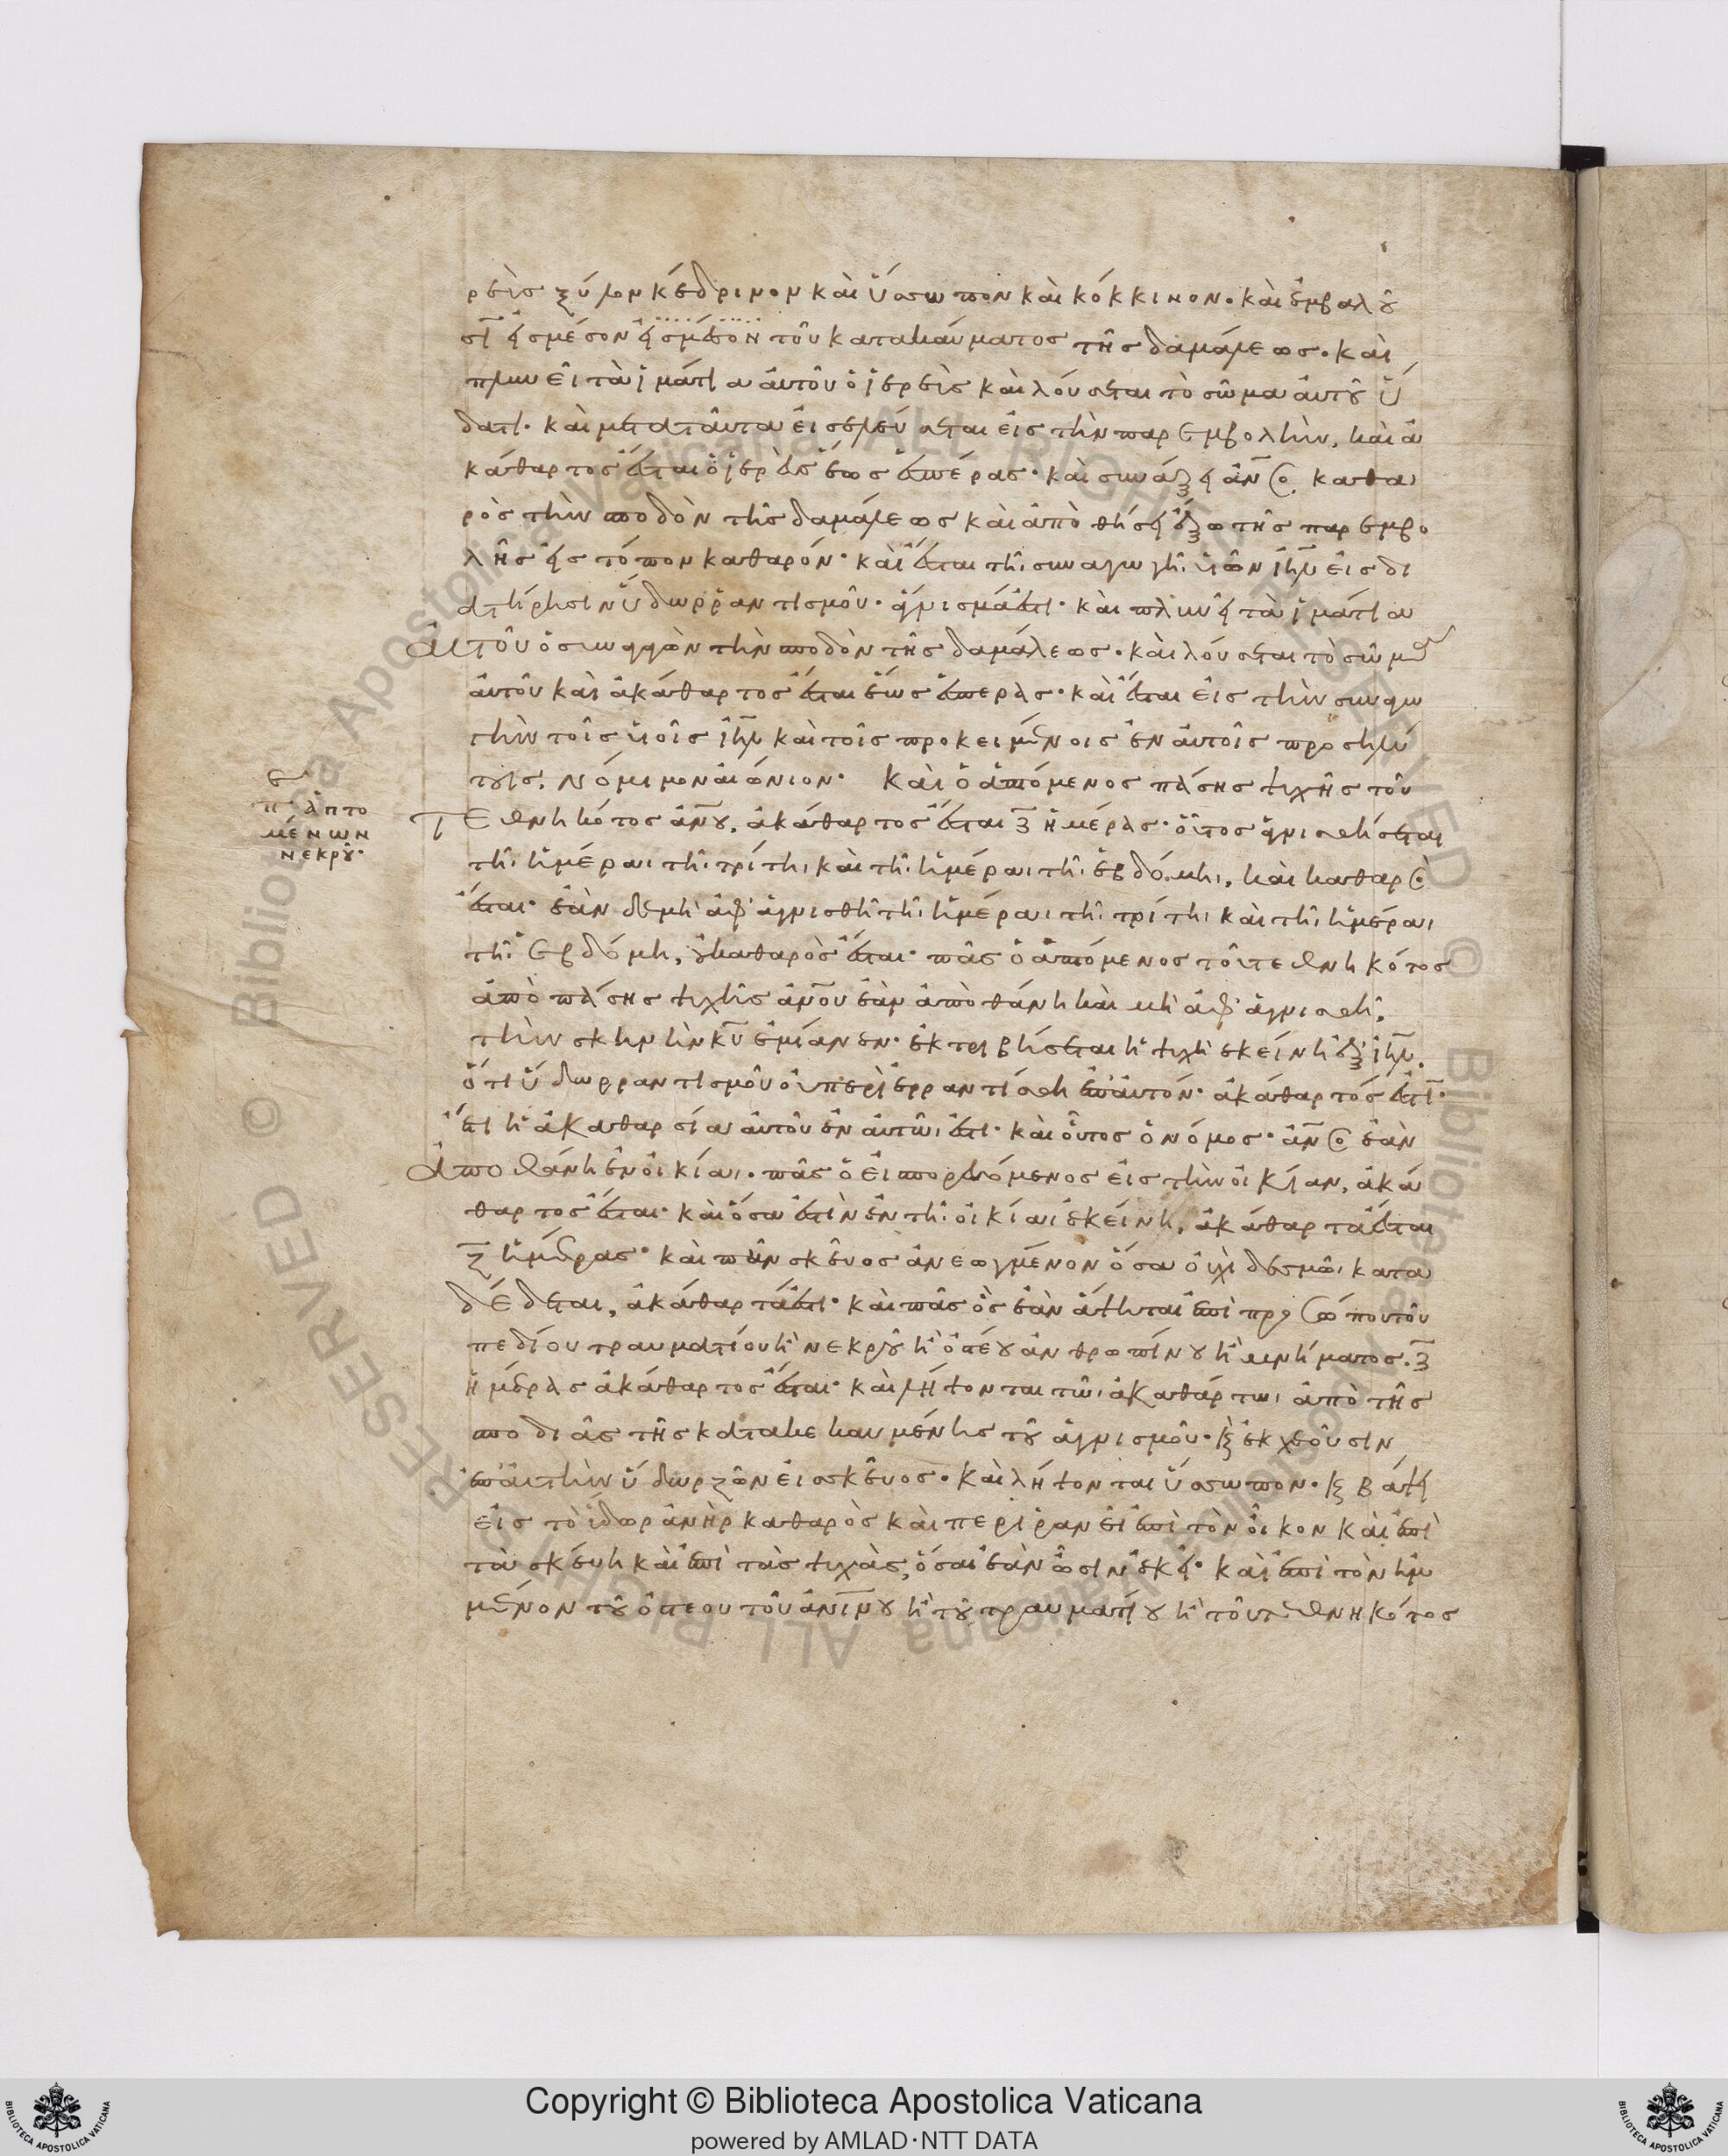 ρεὺς ξύλον κέδρινον καὶ ὕσσωπον καὶ κόκκινον· καὶ ἐμβαλοῦ
σι εἰς μέσον εἰς μέσον τοῦ κατακαύματος τῆς δαμάλεως· καὶ
πλυνεῖ τὰ ἱμάτια αὐτοῦ ὁ ἱερεὺς καὶ λούσεται τὸ σῶμα αὐτοῦ ὕ
δατι· καὶ μετα ταῦτα εἰσελεύσεται εἰς τὴν παρεμβολὴν, καὶ ἀ
κάθαρτος ἔσται ὁ ἱερεὺς ἕως ἑσπέρας· καὶ συνάξει ἀνος καθα
ρὸς τὴν σποδὸν τῆς δαμάλεως καὶ ἀποθήσει ἔξω τῆς παρεμβο
λῆς εἰς τόπον καθαρόν· καὶ ἔσται τῆι συναγωγῆι υἱῶν ιηλ εἰς δι
ατήρησιν ὕδωρ ῥαντισμοῦ· ἅγνισμά ἐστι· καὶ πλυνεῖ τὰ ἱμάτια
αὐτοῦ ὁ συναγαγὼν τὴν σποδὸν τῆς δαμάλεως· καὶ λούσεται τὸ σῶμα
αὐτοῦ καὶ ἀκάθαρτος ἔσται ἕως ἑσπέρας· καὶ ἔσται εἰς τὴν συναγω
γὴν τοῖς υἱοῖς ιηλ καὶ τοῖς προκειμένοις ἐν αὐτοῖς προσηλύ
τοις. νόμιμον αἰώνιον· καὶ ὁ ἁπτόμενος πάσης ψυχῆς τοῦ
τεθνηκότος ἀνου, ἀκάθαρτος ἔσται ζ ἡμέρας· οὗτος ἁγνισθήσεται
τῆι ἡμέραι τῆι τρίτηι καὶ τῆι ἡμέραι τῆι ἑβδόμηι, καὶ καθαρὸς
ἔσται· ἐὰν δὲ μὴ ἀφαγνισθῆ τῆι ἡμέραι τῆι τρίτηι καὶ τῆι ἡμέραι
τῆι ἑβδόμη, οὐ καθαρὸς ἔσται· πᾶς ὁ ἁπτόμενος τοῦ τεθνηκότος
ἀπὸ πάσης ψυχῆς ἀνου ἐὰν ἀποθάνη καὶ μὴ ἀφαγνισθῆ,
τὴν σκηνὴν κυ ἐμίανεν· ἐκτριβήσεται ἡ ψυχὴ ἐκείνη ἐξ ιηλ.
ὅτι ὕδωρ ραντισμοῦ οὐ περιερραντίσθη ἐπ' αὐτόν· ἀκάθαρτός ἐστι·
ἔτι ἡ ἀκαθαρσία αὐτοῦ ἐν αὐτῶι ἐστι· καὶ οὗτος ὁ νόμος· ἀνος ἐὰν
ἀποθάνη ἐν οἰκίαι· πᾶς ὁ εἰσπορευόμενος εἰς τὴν οἰκίαν, ἀκά
θαρτος ἔσται· καὶ ὅσα ἐστὶν ἐν τῆι οἰκίαι ἐκείνη, ἀκάθαρτα ἔσται
ζ ἡμέρας· καὶ πᾶν σκεῦος ἀνεωγμένον ὅσα οὐχὶ δεσμῶι κατα
δέδεται, ἀκάθαρτά ἐστι· καὶ πᾶς ὃς ἐὰν ἅψηται ἐπὶ προσώπου τοῦ
πεδίου τραυματίου ἢ νεκροῦ ἢ ὀστέου ἀνθρωπίνου ἢ μνήματος, ζ
ἡμέρας ἀκάθαρτος ἔσται· καὶ λήψονται τῶι ἀκαθάρτωι ἀπὸ τῆς
σποδιᾶς τῆς κατακεκαυμένης τοῦ ἁγνισμοῦ· κ ἐκχεοῦσιν
ἐπ' αὐτὴν ὕδωρ ζῶν εἰς σκεῦος· καὶ λήψονται ὕσσωπον· κ βάψει
εἰς τὸ ὕδωρ ἀνὴρ καθαρὸς καὶ περιρανεῖ ἐπὶ τὸν οἶκον καὶ ἐπὶ
τὰ σκεύη καὶ ἐπὶ τὰς ψυχὰς, ὅσαι ἐὰν ὦσιν ἐκεῖ· καὶ ἐπὶ τὸν ἡμ
μένον τοῦ ὀστέου τοῦ ἀνινου ἢ τοῦ τραυματίου ἢ τοῦ τεθνηκότος
π ἁπτο
μένων
νεκροῦ·
© Biblioteca Apostolica Vaticana ALL RIGHTS RESERVED
© Biblioteca Apostolica Vaticana ALL RIGHTS RESERVED
Copyright © Biblioteca Apostolica Vaticana
powered by AMLAD·NTT DATA
BIBLIOTECA APOSTOLICA VATICANA
BIBLIOTECA APOSTOLICA VATICANA